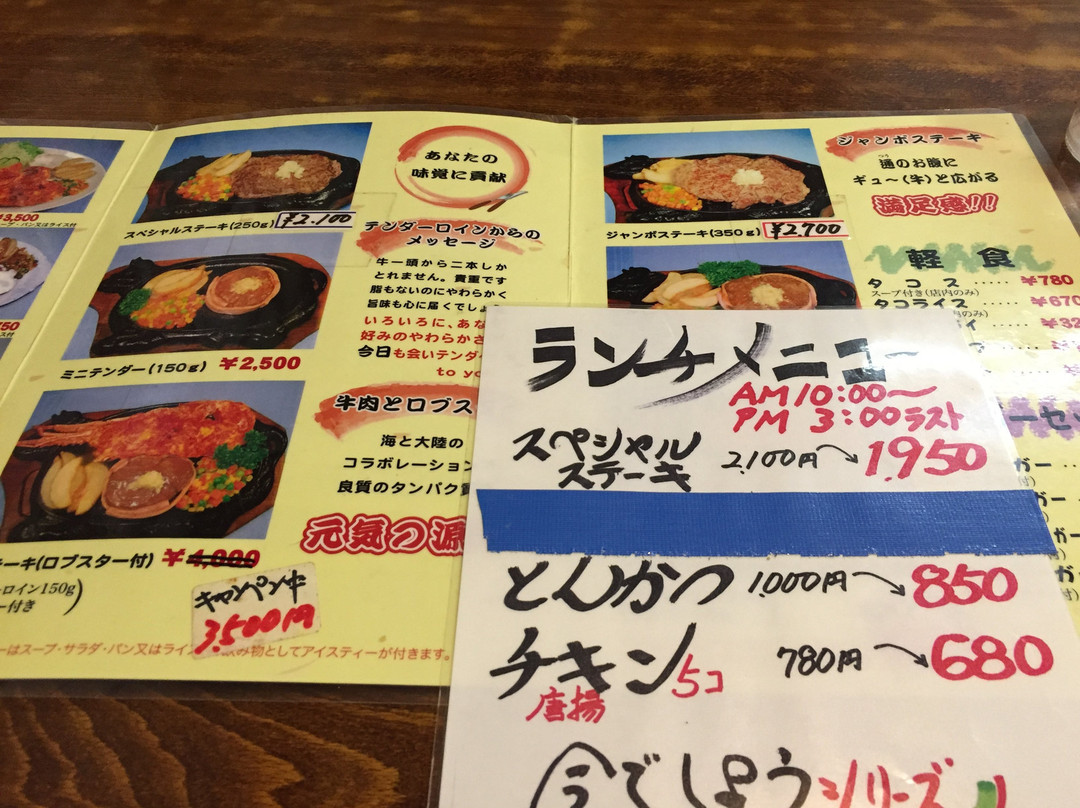 ¥3,500
スペシャルステーキ(250g) ¥2.100
あなたの
味覚に貢献
テンダーロインからの
メッセージ
牛一頭から二本しか
とれません。貴重です
脂もないのにやわらかく
旨味も心に届くでしょ
いろいろに、あな
好みのやわらかさ
今日も会いテンダ
to yo
ミニテンダー(150g) ¥2,500
牛肉とロブス
海と大陸の
コラボレーション
良質のタンパク質
元気の源
ーキ(ロブスター付) ¥4,000
ーロイン150g
ー付き
キャンペン中
3.500円
ーはスープ・サラダ・パン又はライス
飲み物としてアイスティーが付きます。
ジャンボステーキ(350g) ¥2,700
ジャンボステーキ
通のお腹に
つう
ギュ〜(牛)と広がる
満足感!!
軽食
タコス ¥780
スープ付き(店内のみ)
タコライス ¥670
ランチメニュー
AM10:00〜
PM 3:00ラスト
スペシャル
ステーキ 2.100円 1.950
とんかつ 1.000円 850
チキン 5コ 780円 680
唐揚
今でしょうシリーズ